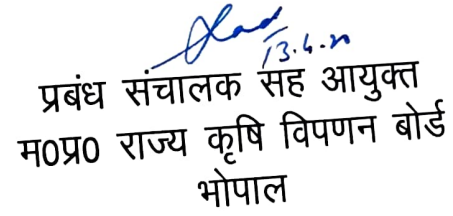 13.4.20
प्रबंध संचालक सह आयुक्त
म0प्र0 राज्य कृषि विपणन बोर्ड
भोपाल